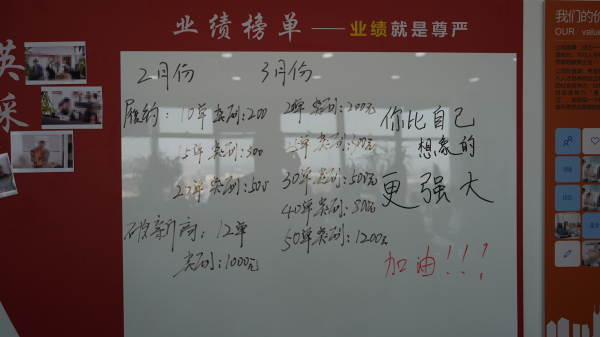 业绩榜单——业绩就是尊严
英
采
我们的价
OUR value
2月份
3月份
履约: 10单奖励:200
15单奖励:300
20单奖励:500
破新商: 12单
奖励:1000元
20单奖励:200元
30单奖励:500元
40单奖励:800元
50单奖励:1200元
你比自己
想象的
更强大
加油!!!